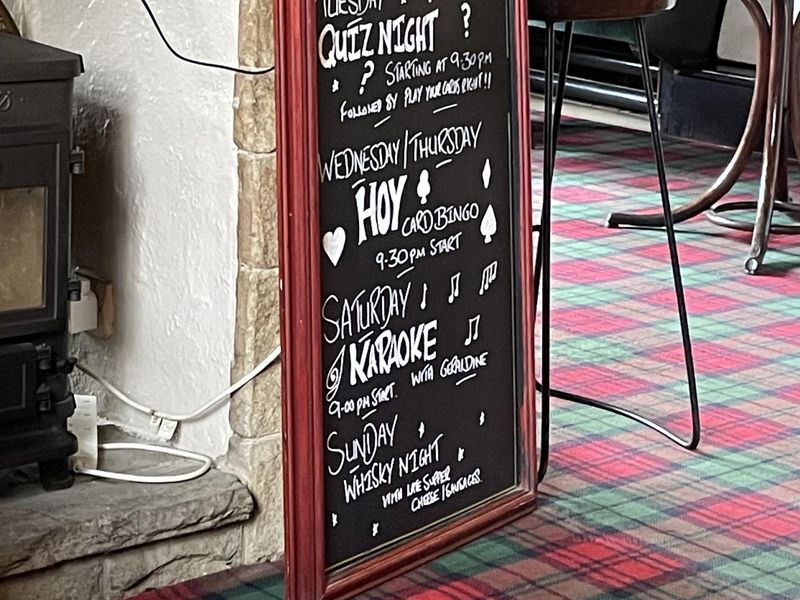 TUESDAY
QUIZ NIGHT ?
? STARTING AT 9·30 PM
FOLLOWED BY PLAY YOUR CARDS RIGHT!!
WEDNESDAY / THURSDAY
HOY CARD BINGO
9·30 PM START
SATURDAY
KARAOKE
9·00 PM START. WITH GERALDINE
SUNDAY
WHISKY NIGHT
WITH LATE SUPPER
CHEESE / SAUSAGES.